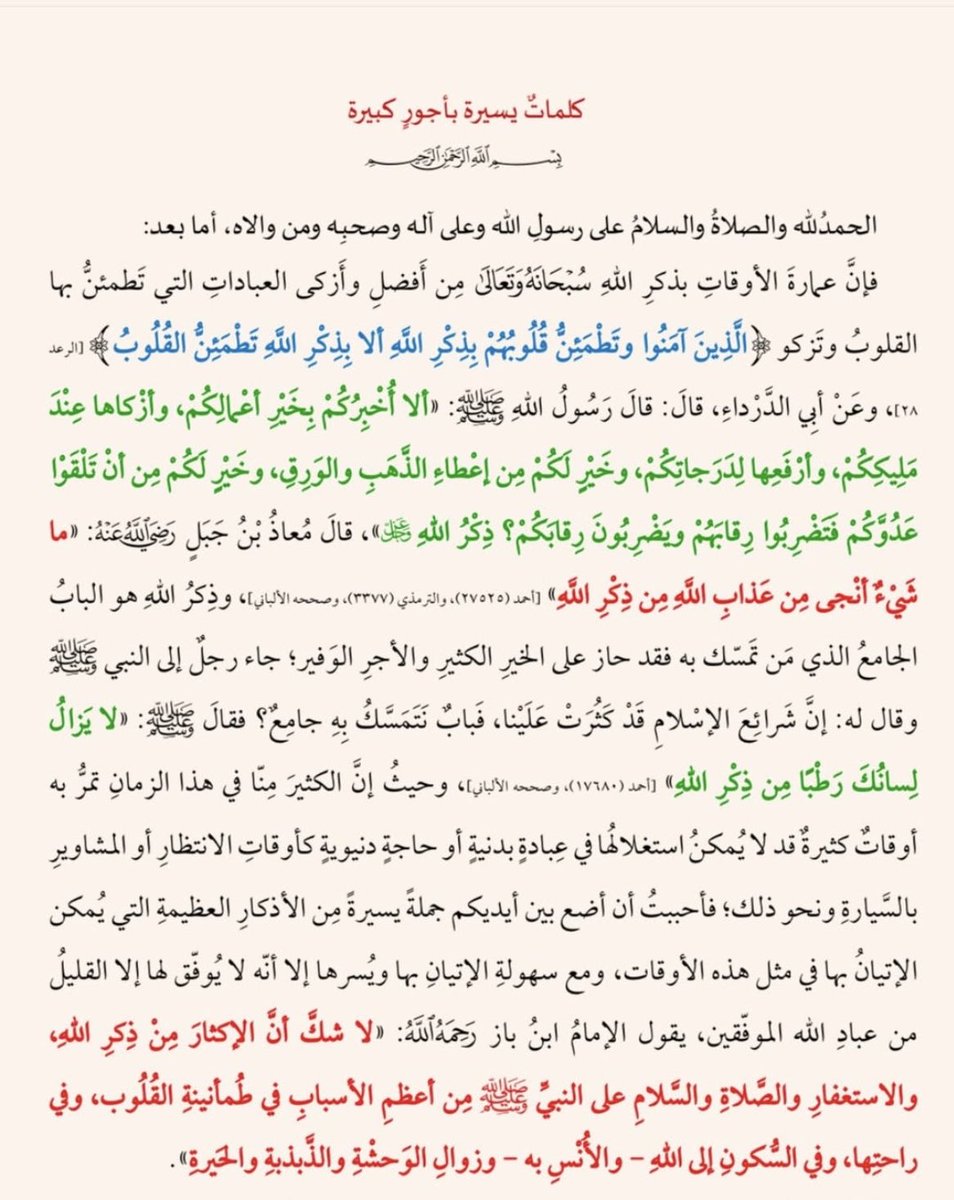 كلماتٌ يسيرة بأجورٍ كبيرة
بِسْمِ اللَّهِ الرَّحْمَٰنِ الرَّحِيمِ
الحمدُلله والصلاةُ والسلامُ على رسولِ الله وعلى آله وصحبِه ومن والاه، أما بعد:
فإنَّ عمارةَ الأوقاتِ بذكرِ اللهِ سُبْحَانَهُ وَتَعَالَىٰ مِن أَفضلِ وأَزكى العباداتِ التي تَطمئنُّ بها
القلوبُ وتَزكو ﴿الَّذِينَ آمَنُوا وتَطْمَئِنُّ قُلُوبُهُمْ بِذِكْرِ اللَّهِ ألا بِذِكْرِ اللَّهِ تَطْمَئِنُّ القُلُوبُ﴾ [الرعد
٢٨]، وعَنْ أبِي الدَّرْداءِ، قالَ: قالَ رَسُولُ اللهِ ﷺ: «ألا أُخْبِرُكُمْ بِخَيْرِ أعْمالِكُمْ، وأزْكاها عِنْدَ
مَلِيكِكُمْ، وأرْفَعِها لِدَرَجاتِكُمْ، وخَيْرٍ لَكُمْ مِن إعْطاءِ الذَّهَبِ والوَرِقِ، وخَيْرٍ لَكُمْ مِن أنْ تَلْقَوْا
عَدُوَّكُمْ فَتَضْرِبُوا رِقابَهُمْ ويَضْرِبُونَ رِقابَكُمْ؟ ذِكْرُ اللهِ عَزَّ وَجَلَّ»، قالَ مُعاذُ بْنُ جَبَلٍ رَضِيَ اللَّهُ عَنْهُ: «ما
شَيْءٌ أنْجى مِن عَذابِ اللَّهِ مِن ذِكْرِ اللَّهِ» [أحمد (٢٧٥٢٥)، والترمذي (٣٣٧٧)، وصححه الألباني]، وذِكرُ اللهِ هو البابُ
الجامعُ الذي مَن تمَسّك به فقد حاز على الخيرِ الكثيرِ والأجرِ الوَفير؛ جاء رجلٌ إلى النبي ﷺ
وقال له: إنَّ شَرائِعَ الإسْلامِ قَدْ كَثُرَتْ عَلَيْنا، فَبابٌ نَتَمَسَّكُ بِهِ جامِعٌ؟ فقالَ ﷺ: «لا يَزالُ
لِسانُكَ رَطْبًا مِن ذِكْرِ اللهِ» [أحمد (١٧٦٨٠)، وصححه الألباني]، وحيثُ إنَّ الكثيرَ مِنّا في هذا الزمانِ تمرُّ به
أوقاتٌ كثيرةٌ قد لا يُمكنُ استغلالُها في عِبادةٍ بدنيةٍ أو حاجةٍ دنيويةٍ كأوقاتِ الانتظارِ أو المشاويرِ
بالسَّيارةِ ونحو ذلك؛ فأحببتُ أن أضع بين أيديكم جملةً يسيرةً مِن الأذكارِ العظيمةِ التي يُمكن
الإتيانُ بها في مثل هذه الأوقات، ومع سهولةِ الإتيانِ بها ويُسرها إلا أنّه لا يُوفّق لها إلا القليلُ
من عبادِ الله الموفّقين، يقول الإمامُ ابنُ باز رَحِمَهُ اللَّهُ: «لا شكَّ أنَّ الإكثارَ مِنْ ذِكرِ اللهِ،
والاستغفارِ والصَّلاةِ والسَّلامِ على النبيِّ ﷺ مِن أعظمِ الأسبابِ في طُمأنينةِ القُلُوب، وفي
راحتِها، وفي السُّكونِ إلى اللهِ – والأُنْسِ به – وزوالِ الوَحشْةِ والذَّبذبةِ والحَيرةِ».